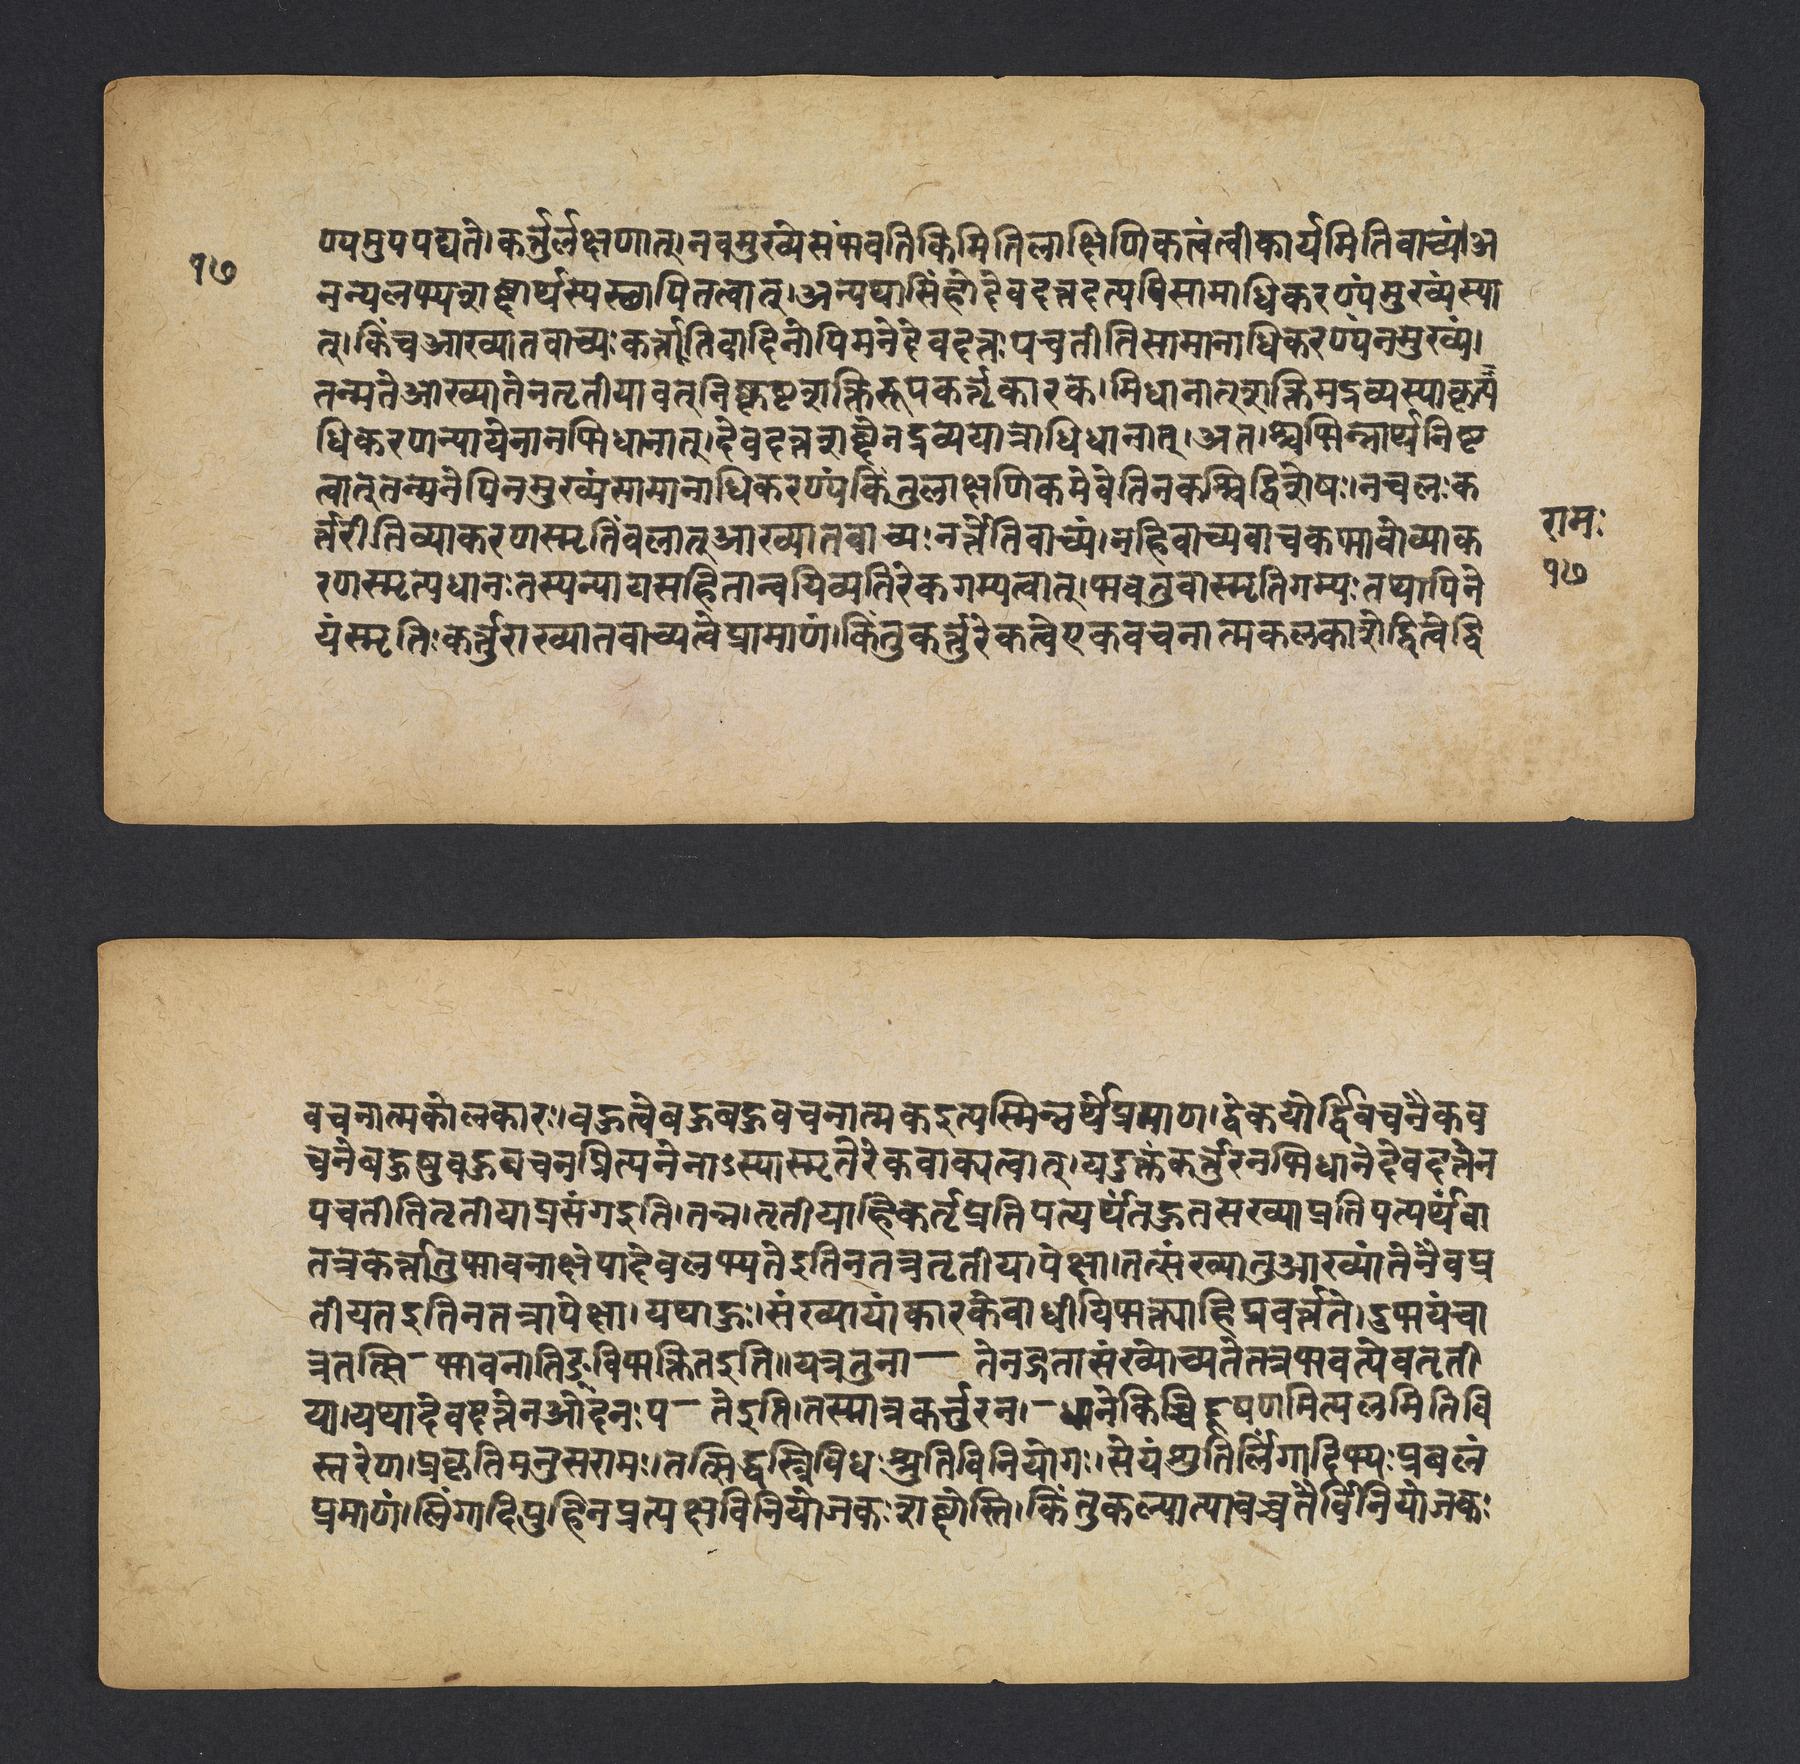 १७
ण्यमुपपद्यते।कर्त्तुर्लक्षणात्।नवमुख्येसंभवतिकिमितिलाक्षिणिकत्वंत्वीकार्यमितिवाच्यं।अ
नन्यलभ्यशब्दार्थस्यस्छापितत्वात्।अन्यथासिंहोदेवदत्तइत्यपिसामाधिकरण्यंमुख्यंस्या
त्।किंचआख्यातवाच्यःकर्त्तातिवादिनोपिमनेदेवदत्तःपचतीतिसामानाधिकरण्यंनमुख्यं।
तन्मतेआख्यातेनतृतीयावत्निष्कृष्टशक्तिरूपकर्त्तृकारक।भिधानात्शक्तिमद्रव्यस्याकृत्य
धिकरणन्यायेनानभिधानात्।देवदत्तशब्देनद्रव्ययात्राधिधानात्।अत।श्चभिन्नार्थनिष्ट
त्वात्तन्मनेपिनमुख्यंसामानाधिकरण्यंकिंतुलाक्षणिकमेवेतिनकश्चिद्विशेषः।नचलःक
र्त्तरीतिव्याकरणस्मृतिंवलात्आख्यातवाच्यः।नर्त्तेतिवाच्यं।नहिवाच्यवाचकभावोव्याक
रणस्मृत्यधानःतस्यन्यायसहितान्वयिव्यतिरेकगम्यत्वात्।भवतुवास्मृतिगम्यःतथापिने
यंस्मृतिःकर्त्तुराख्यातवाच्यत्वेप्रामाणं।किंतुकर्त्तुरेकत्वेएकवचनात्मकलकारोद्वित्वेद्वि
रामः
१७
वचनात्मकोलकारः।वङत्वेबङबङवचनात्मकइत्यस्मिन्नर्थेप्रमाण।द्वेकयोर्द्विवचनैकव
चनेबङषुवङबचनमित्यनेनाऽस्यास्मृतेरेकवाक्यत्वात्।यदुक्तंकर्त्तुरनभिधानेदेवदत्तेन
पचतीतितृतीयाप्रसंगइति।तन्न।तृतीयाहिकर्तृप्रतिपत्यर्थंतङतसख्याप्रतिपत्यर्थंवा
तत्रकर्त्तातुभावनाक्षेपादेवलभ्यतेइतिनतत्रतृतीयापेक्षा।तत्संख्यातुआख्यातेनैवप्र
तीयतइतिनतत्रापेक्षा।यथाङः।संख्यायांकारकेवाधीविभक्त्याहिप्रवर्त्तते।उभयंचा
त्रतत्सि—भावनातिङ्विभक्तितइति॥यत्रतुना—तेनङतासंख्योच्यतेतत्रभवत्येवतृती
या।यथादेवदत्तेनओदनःप—तेइति।तस्मान्नकर्त्तुरन।—धानेकिंचिद्दूषणमित्यलमितिवि
स्तरेण।प्रकृतिमनुसरामः।तत्सिद्धस्त्रिविधःश्रुतिविनियोगः।सेयंश्रुतिर्लिंगादिभ्यःप्रबलं
प्रमाणं।लिंगादिषुहिनप्रत्यक्षविनियोजकःशब्दोस्ति।किंतुकल्प्यात्यावच्चतैर्विनियोजकः